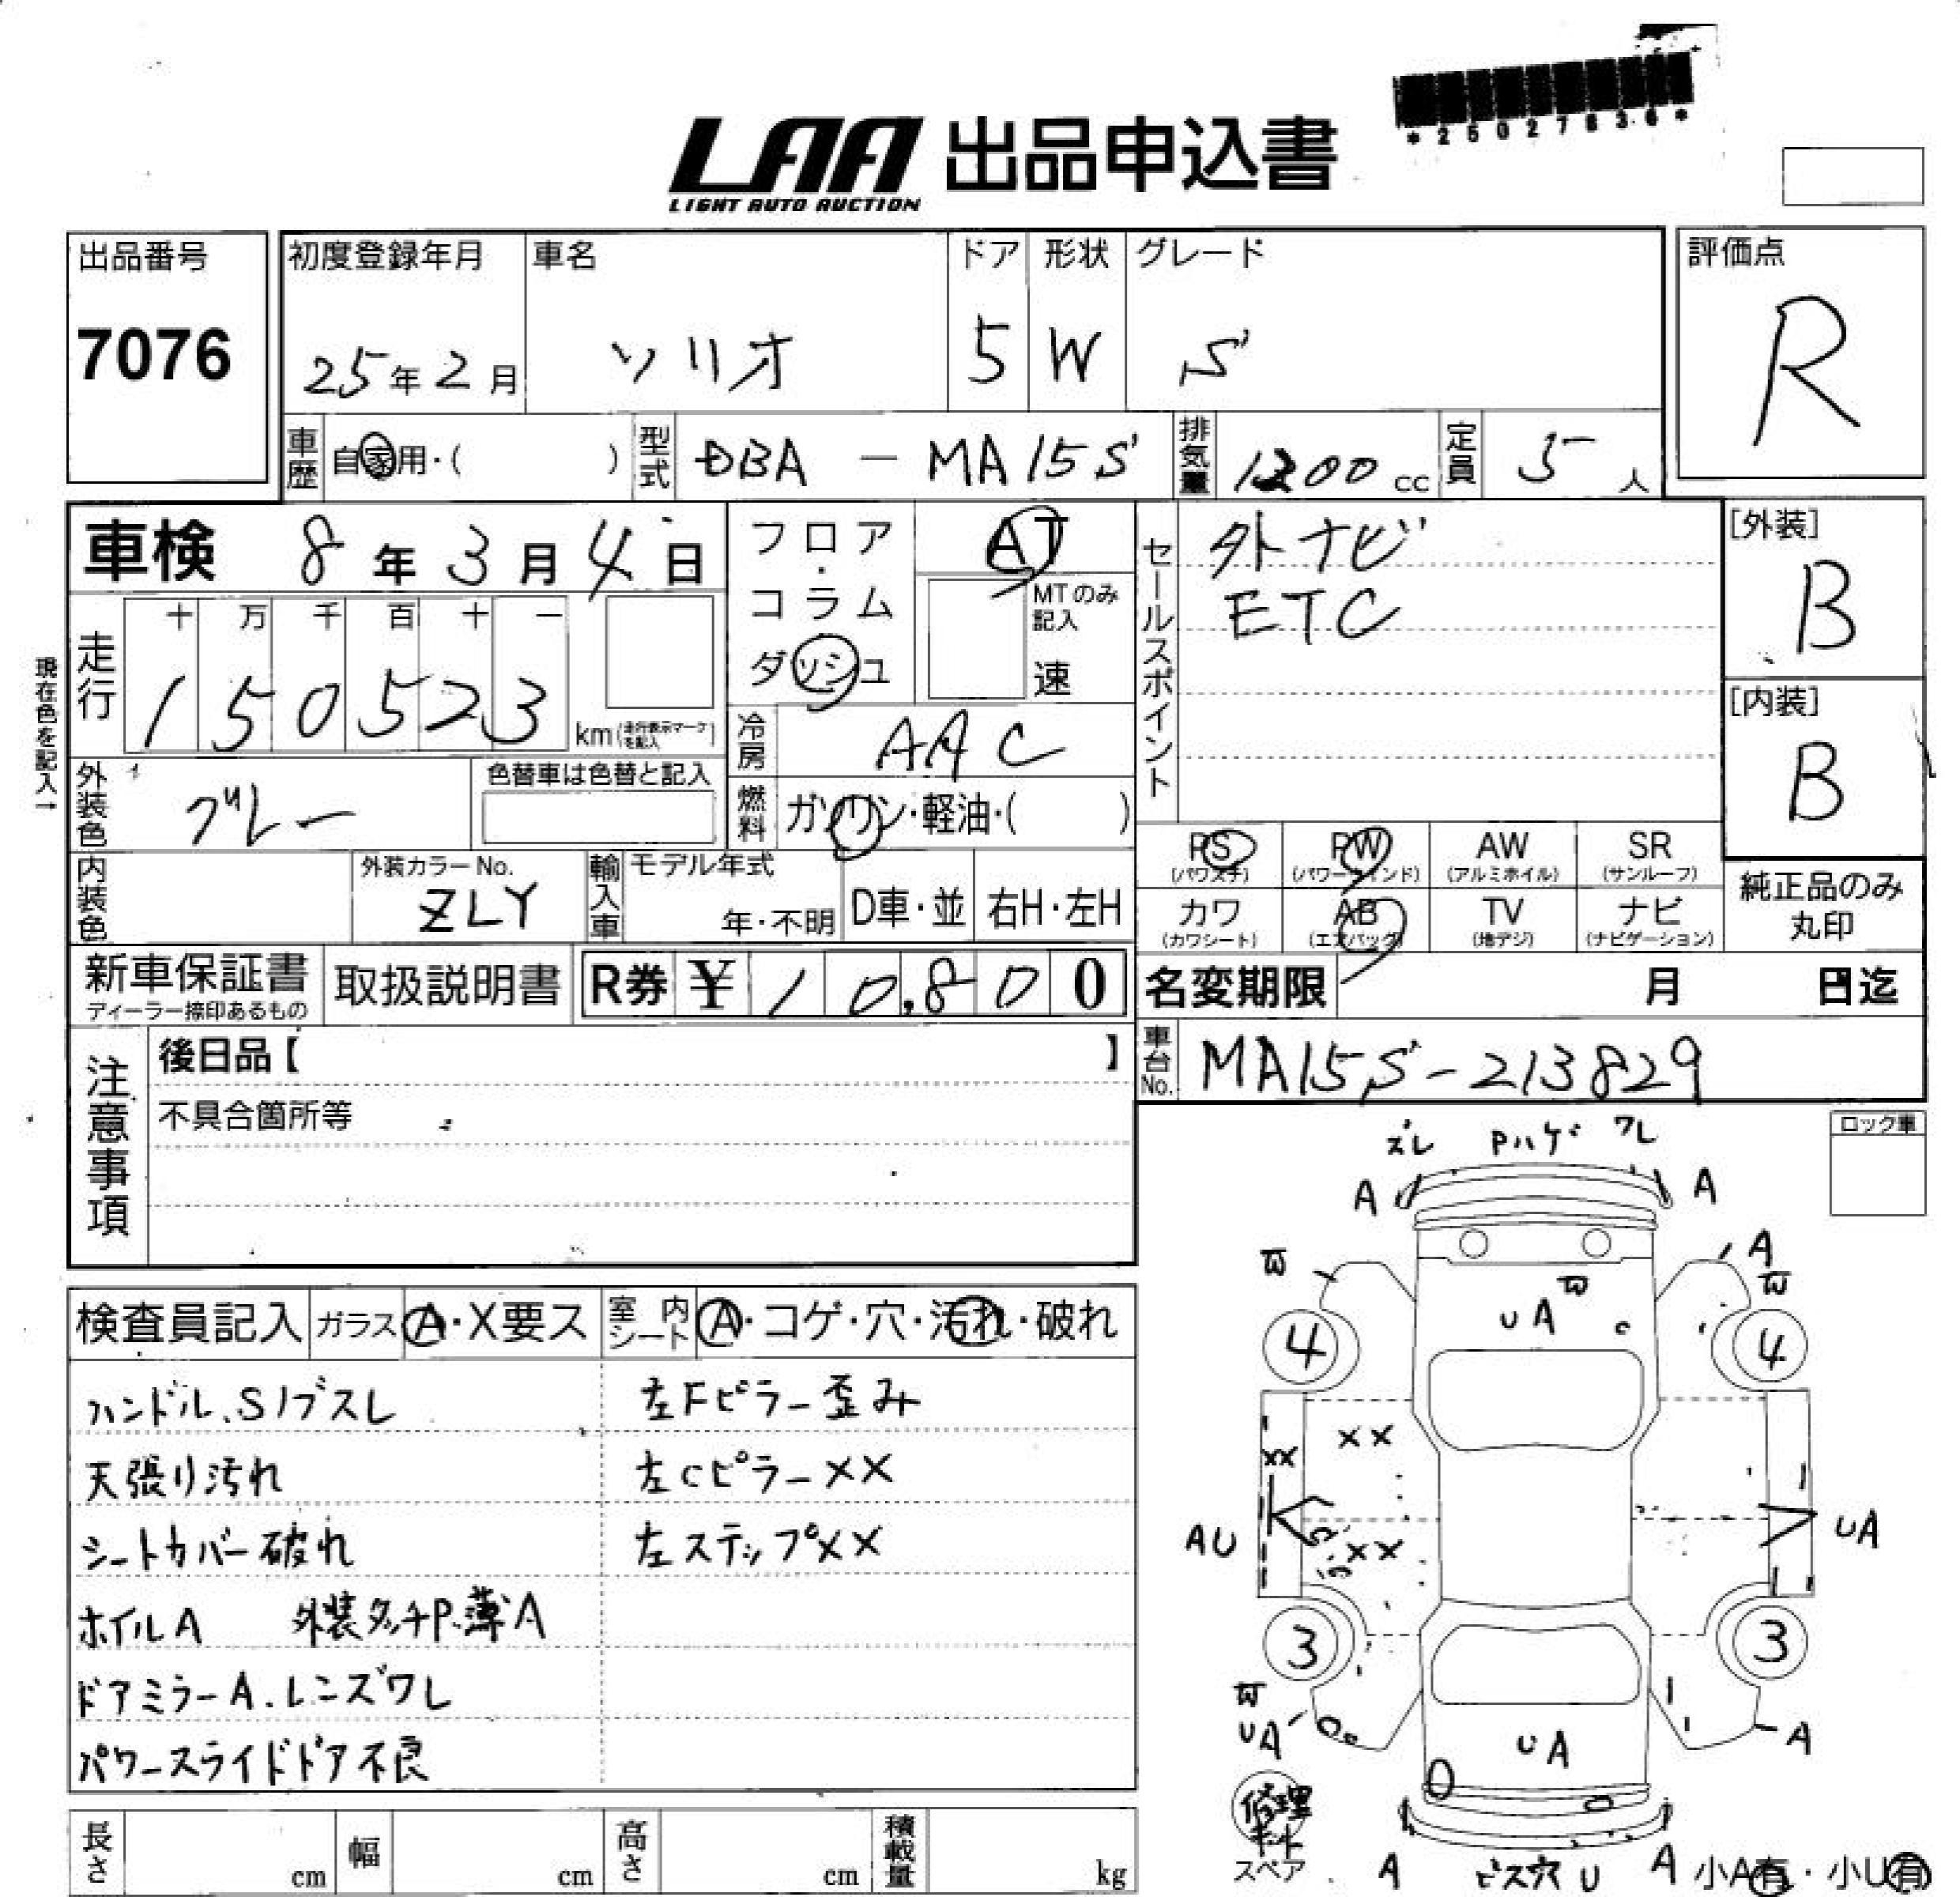 *25027836*
LAA 出品申込書
LIGHT AUTO AUCTION
出品番号 初度登録年月 車名 ドア 形状 グレード 評価点
7076 25年2月 ソリオ 5 W S R
車歴 自家用・( ) 型式 DBA - MA15S 排気量 1200cc 定員 5人
車検 8年3月4日 フロア・コラム AT セールスポイント 外ナビ [外装]
ETC B
MTのみ記入
ダッシュ 速
現在色を記入→
走行 十 万 千 百 十 一
150523 km(走行表示マークを記入) 冷房 AAC [内装]
B
外装色 グレー 色替車は色替と記入 燃料 ガソリン・軽油・( )
PS (パワステ) PW (パワーウインド) AW (アルミホイル) SR (サンルーフ)
カワ (カワシート) AB (エアバッグ) TV (地デジ) ナビ (ナビゲーション) 純正品のみ丸印
内装色 外装カラーNo. ZLY 輸入車 モデル年式 年・不明 D車・並 右H・左H
新車保証書 ディーラー捺印あるもの 取扱説明書 R券 ¥10,800 名変期限 月 日迄
注意事項 後日品【 】 車台No. MA15S-213829
不具合箇所等
ロック車
ズレ Pハゲ ワレ
A A
W A
W
W
UA
4 4
検査員記入 ガラス A・X要ス 室内シート A・コゲ・穴・汚れ・破れ
ハンドル、Sノブスレ 左Fピラー歪み
天張り汚れ 左Cピラー××
シートカバー破れ 左ステップ××
ホイルA 外装タッチP、薄A
ドアミラーA、レンズワレ
パワースライドドア不良
×× ××
AU ×× UA
3 3
W
UA UA A
修理キット
スペア A ビス穴 U A 小A有・小U有
長さ cm 幅 cm 高さ cm 積載量 kg